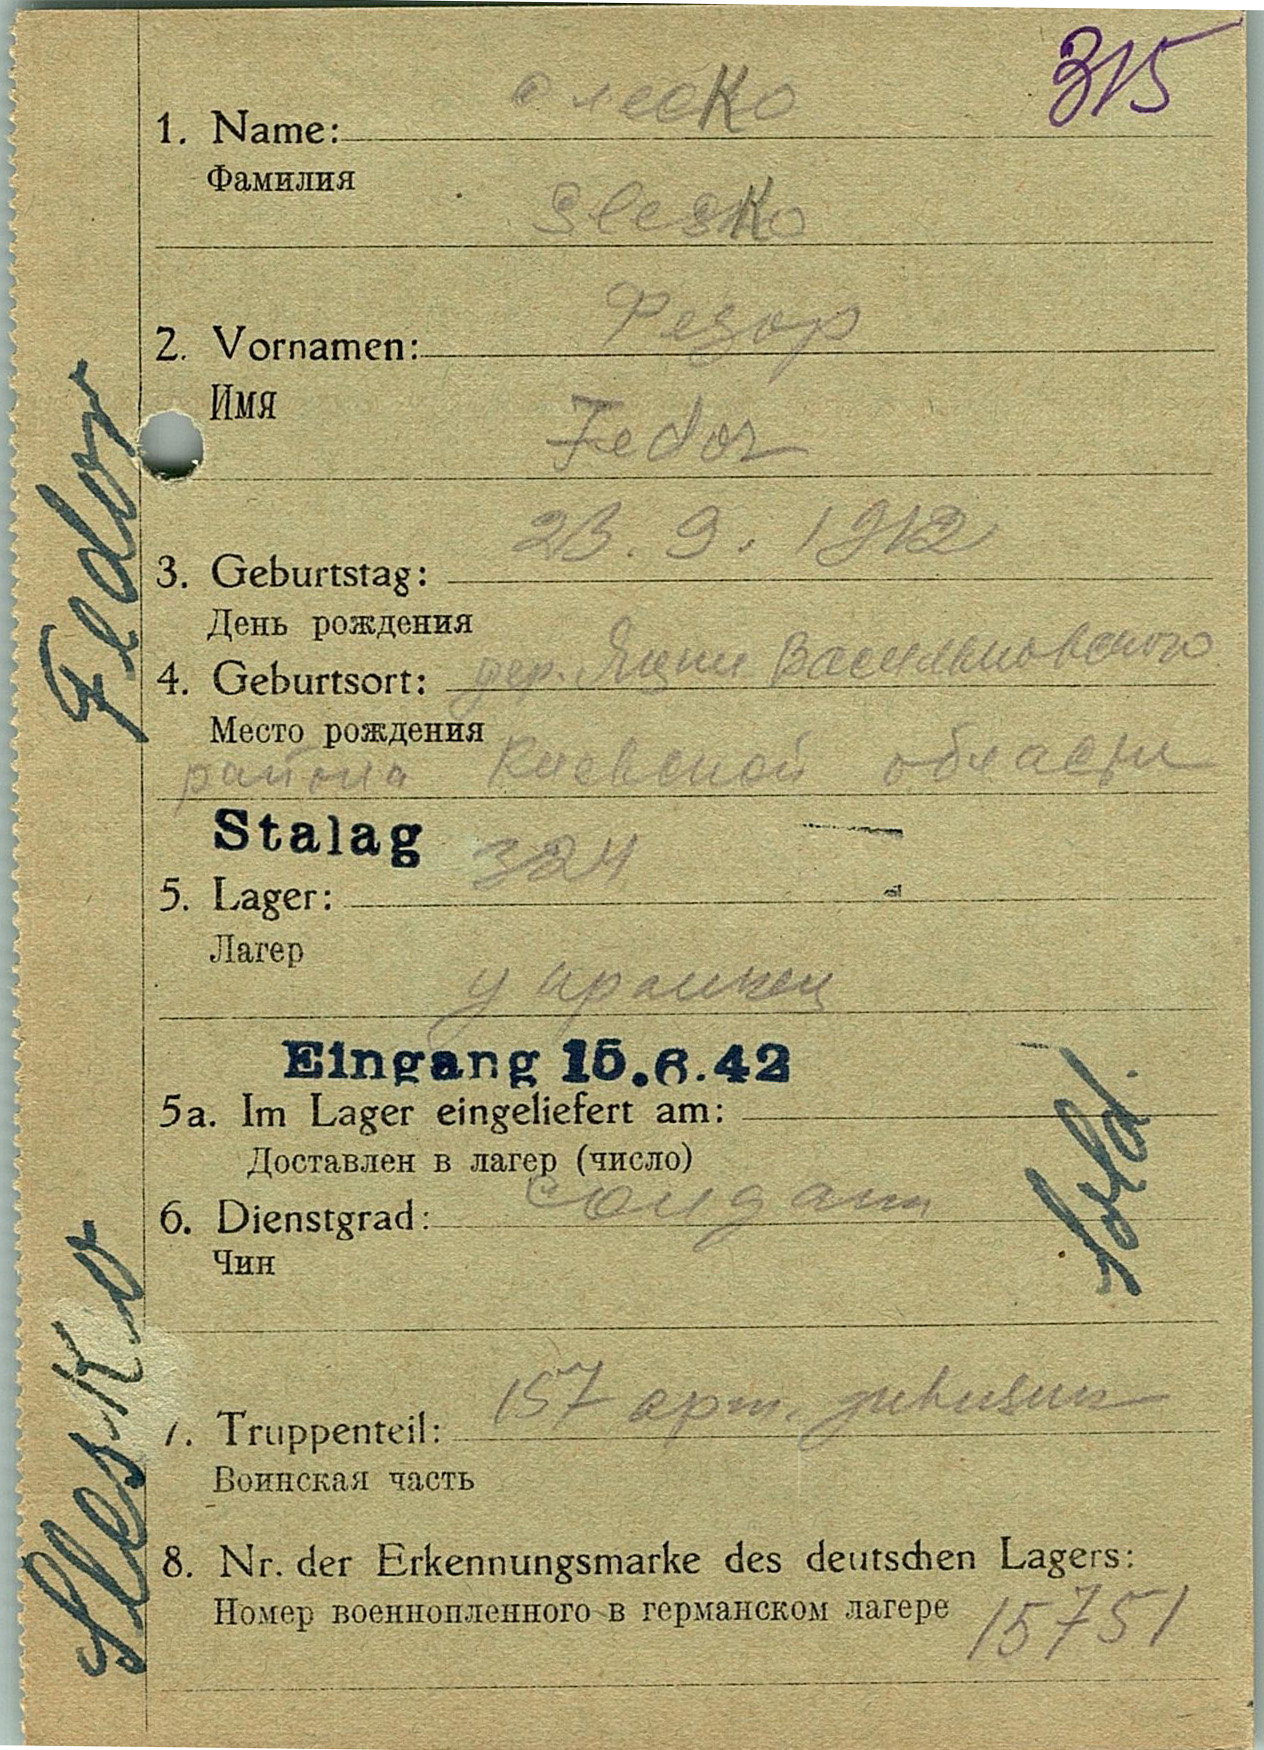 315
слеско
1. Name:
Фамилия
Slesko
Федор
2. Vornamen:
Имя
Fedor
23. 9. 1912
3. Geburtstag:
День рождения
дер. Яцки Васильковского
4. Geburtsort:
Место рождения
района Киевской области
Stalag 324
5. Lager:
Лагер
украинец
Eingang 15.6.42
5a. Im Lager eingeliefert am:
Доставлен в лагер (число)
солдат
6. Dienstgrad:
Чин
Sold.
157 арт. дивизии
7. Truppenteil:
Воинская часть
8. Nr. der Erkennungsmarke des deutschen Lagers:
Номер военнопленного в германском лагере 15751
Slesko Fedor